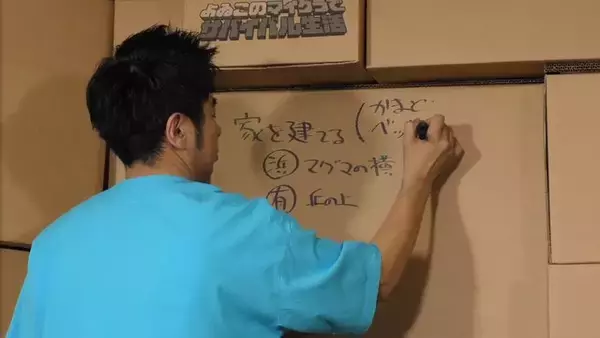 よゐこのマイクラで
サバイバル生活
家を建てる(かまど
ベッ
浜 マグマの横
有 丘の上